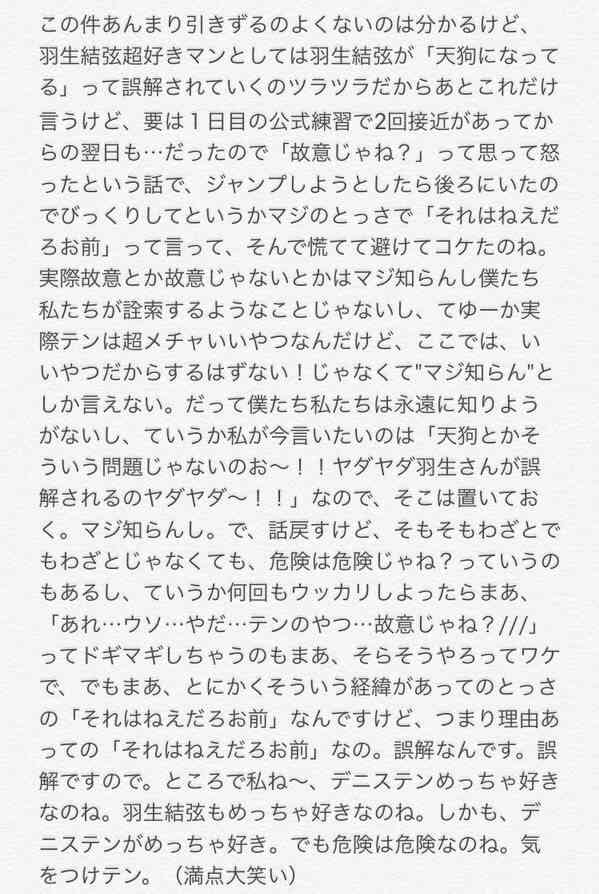 この件あんまり引きずるのよくないのは分かるけど、
羽生結弦超好きマンとしては羽生結弦が「天狗になって
る」って誤解されていくのツラツラだからあとこれだけ
言うけど、要は１日目の公式練習で2回接近があってか
らの翌日も…だったので「故意じゃね？」って思って怒
ったという話で、ジャンプしようとしたら後ろにいたの
でびっくりしてというかマジのとっさで「それはねえだ
ろお前」って言って、そんで慌てて避けてコケたのね。
実際故意とか故意じゃないとかはマジ知らんし僕たち
私たちが詮索するようなことじゃないし、てゆーか実
際テンは超メチャいいやつなんだけど、ここでは、い
いやつだからするはずない！じゃなくて"マジ知らん"と
しか言えない。だって僕たち私たちは永遠に知りよう
がないし、ていうか私が今言いたいのは「天狗とかそ
ういう問題じゃないのお〜！！ヤダヤダ羽生さんが誤
解されるのヤダヤダ〜！！」なので、そこは置いてお
く。マジ知らんし。で、話戻すけど、そもそもわざとで
もわざとじゃなくても、危険は危険じゃね？っていうの
もあるし、ていうか何回もウッカリしよったらまあ、
「あれ…ウソ…やだ…テンのやつ…故意じゃね？///」
ってドギマギしちゃうのもまあ、そらそうやろってワケ
で、でもまあ、とにかくそういう経緯があってのとっさ
の「それはねえだろお前」なんですけど、つまり理由あ
っての「それはねえだろお前」なの。誤解なんです。誤
解ですので。ところで私ね〜、デニステンめっちゃ好き
なのね。羽生結弦もめっちゃ好きなのね。しかも、デ
ニステンがめっちゃ好き。でも危険は危険なのね。気
をつけテン。（満点大笑い）